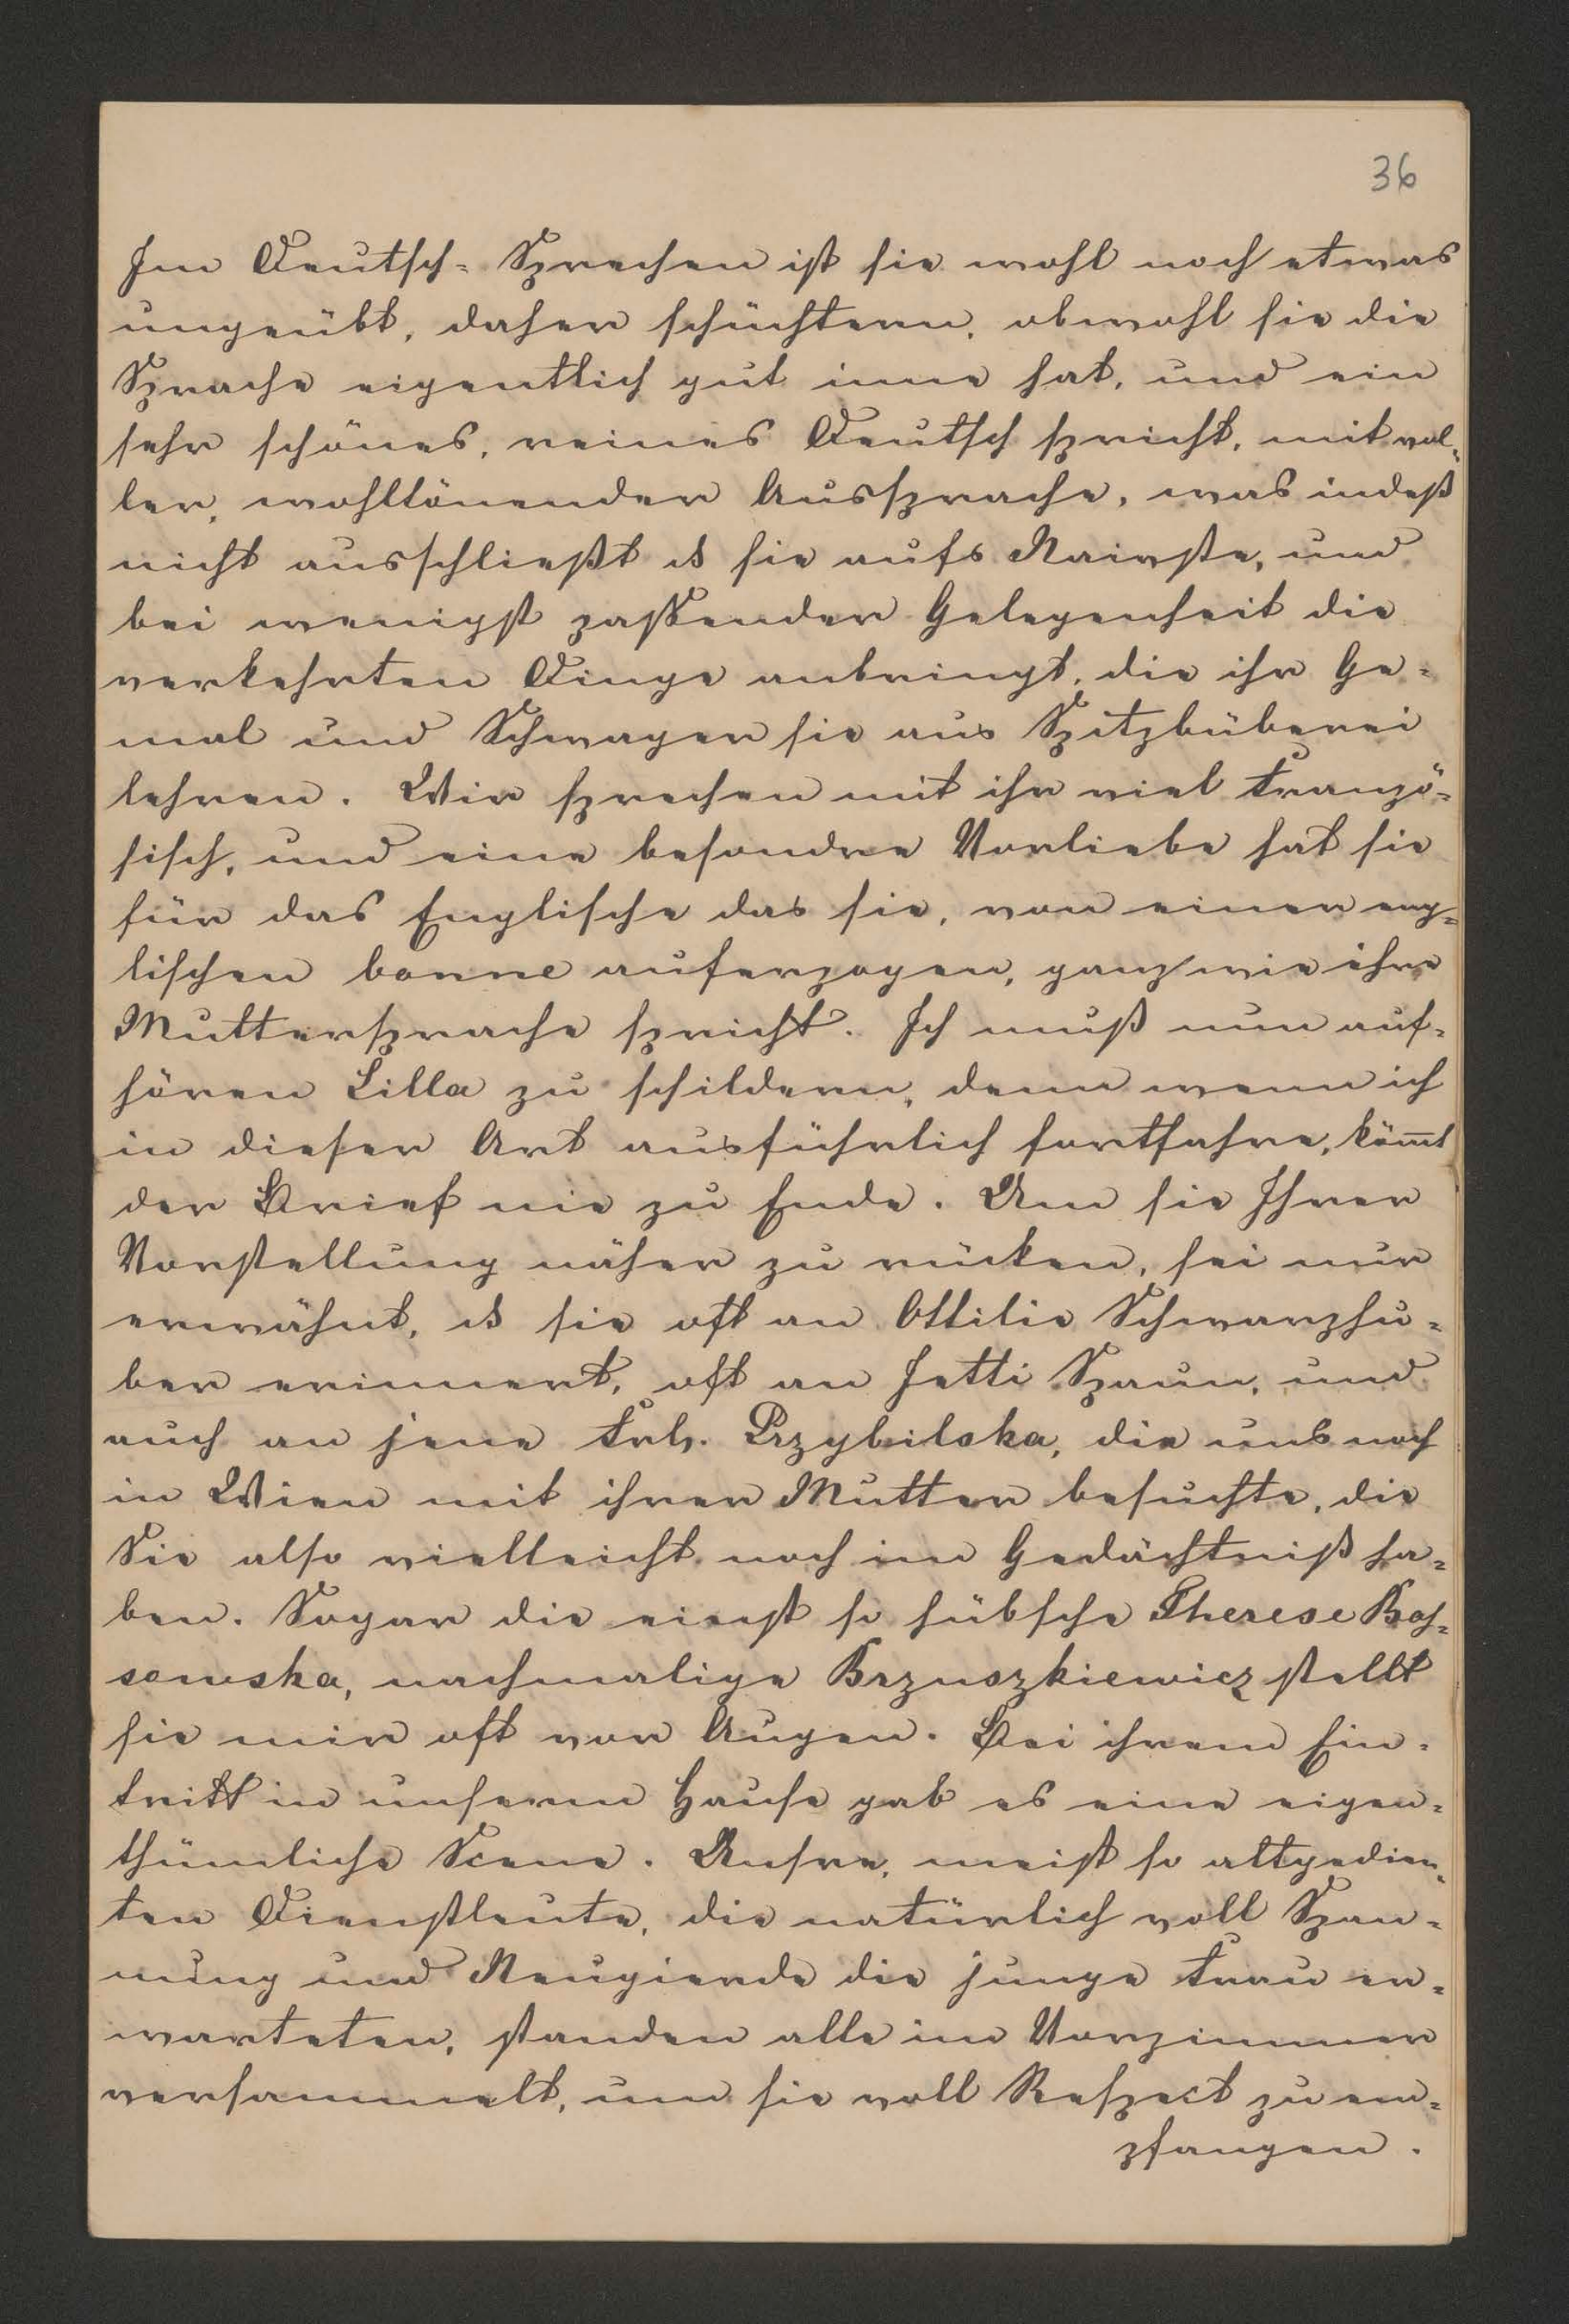 36
Im Deutsch-Sprechen ist sie wohl noch etwas
ungeübt, daher schüchtern, obwohl sie die
Sprache eigentlich gut inne hat, und ein
sehr schönes, reines Deutsch spricht, mit vol-
ler, wohltönender Aussprache, was indeß
nicht ausschließt ds sie aufs Naivste, und
bei wenigst passender Gelegenheit die
verkehrten Dinge anbringt, die ihr Ge-
mal und Schwager sie aus Spitzbüberei
lehren. Wir sprechen mit ihr viel Franzö-
sisch, und eine besondre Vorliebe hat sie
für das Englische das sie, von einer eng-
lischen bonne auferzogen, ganz wie ihre
Muttersprache spricht. Ich muß nun auf-
hören Lilla zu schildern, denn wenn ich
in dieser Art ausführlich fortfahre, köm̄t
der Brief nie zu Ende. Um sie Ihrer
Vorstellung näher zu rücken, sei nur
erwähnt, ds sie oft an Ottilie Schwarzhu-
ber erinnert, oft an Jetti Spaun, und
auch an jene Frl. Przybilska, die uns noch
in Wien mit ihrer Mutter besuchte, die
Sie also vielleicht noch im Gedächtniß ha-
ben. Sogar die einst so hübsche Therese
sowska, nachmalige Brzuszkiewicz stellt
sie mir oft vor Augen. Bei ihrem Ein-
tritt in unserm Hause gab es eine eigen-
thümliche Scene. Unsre, meist so altgedien-
ten Dienstleute, die natürlich voll Span-
nung und Neugierde die junge Frau er-
warteten, standen alle im Vorzimmer
versammelt, um sie voll Respect zu em-
pfangen.